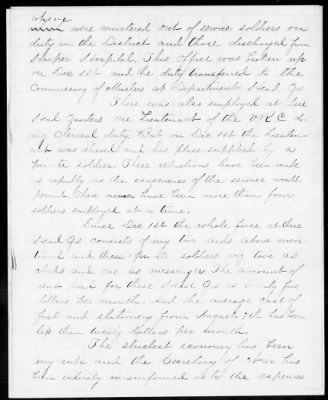 where
were mustered out of service soldiers on
duty in the District and those discharged from
Harper Hospital. This Office was broken up
on Dec 1st and the duty transferred to the
Commissary of Musters at Department Head Qrs
There was also employed at these
Head Quarters one Lieutenant of the V R C do-
ing Clerical duty, But on Dec 1st the Lieuten-
ant was relieved and his place supplied by a
private soldier. These reductions have been made
as rapidly as the exigencies of the service would
permit. There never have been more than four
soldiers employed at a time.
Since Dec 1st the whole force at these
Head Qrs consists of my two aids above men-
tioned and three private soldiers viz two as
clerks and one as messenger The amount of
rent paid for these Head Qrs is twenty five
dollars per month. and the average cost of
fuel and stationery from August 7th has been
less than twenty dollars per month.
The strictest economy has been
my rule and the Secretary of War has
been entirely misinformed as to the expenses